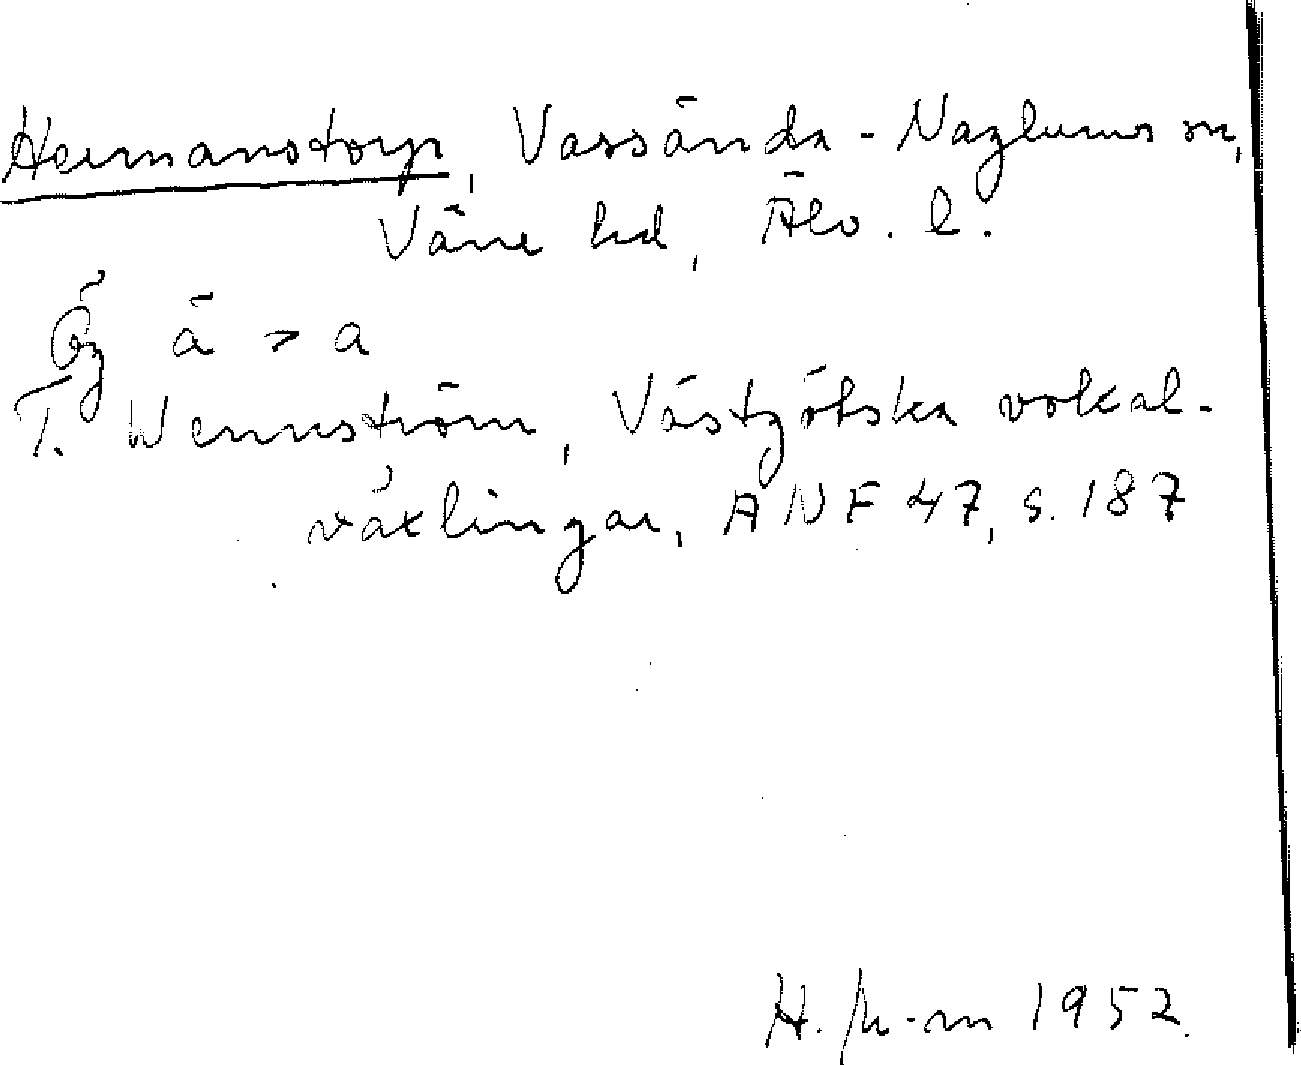 Hermanstorp, Vassända-Naglums sn,
Väne hd, Älv. l.
Ög ä > a
T. Wennström, Västgötska vokal-
växlingar, ANF 47, s. 187
1952